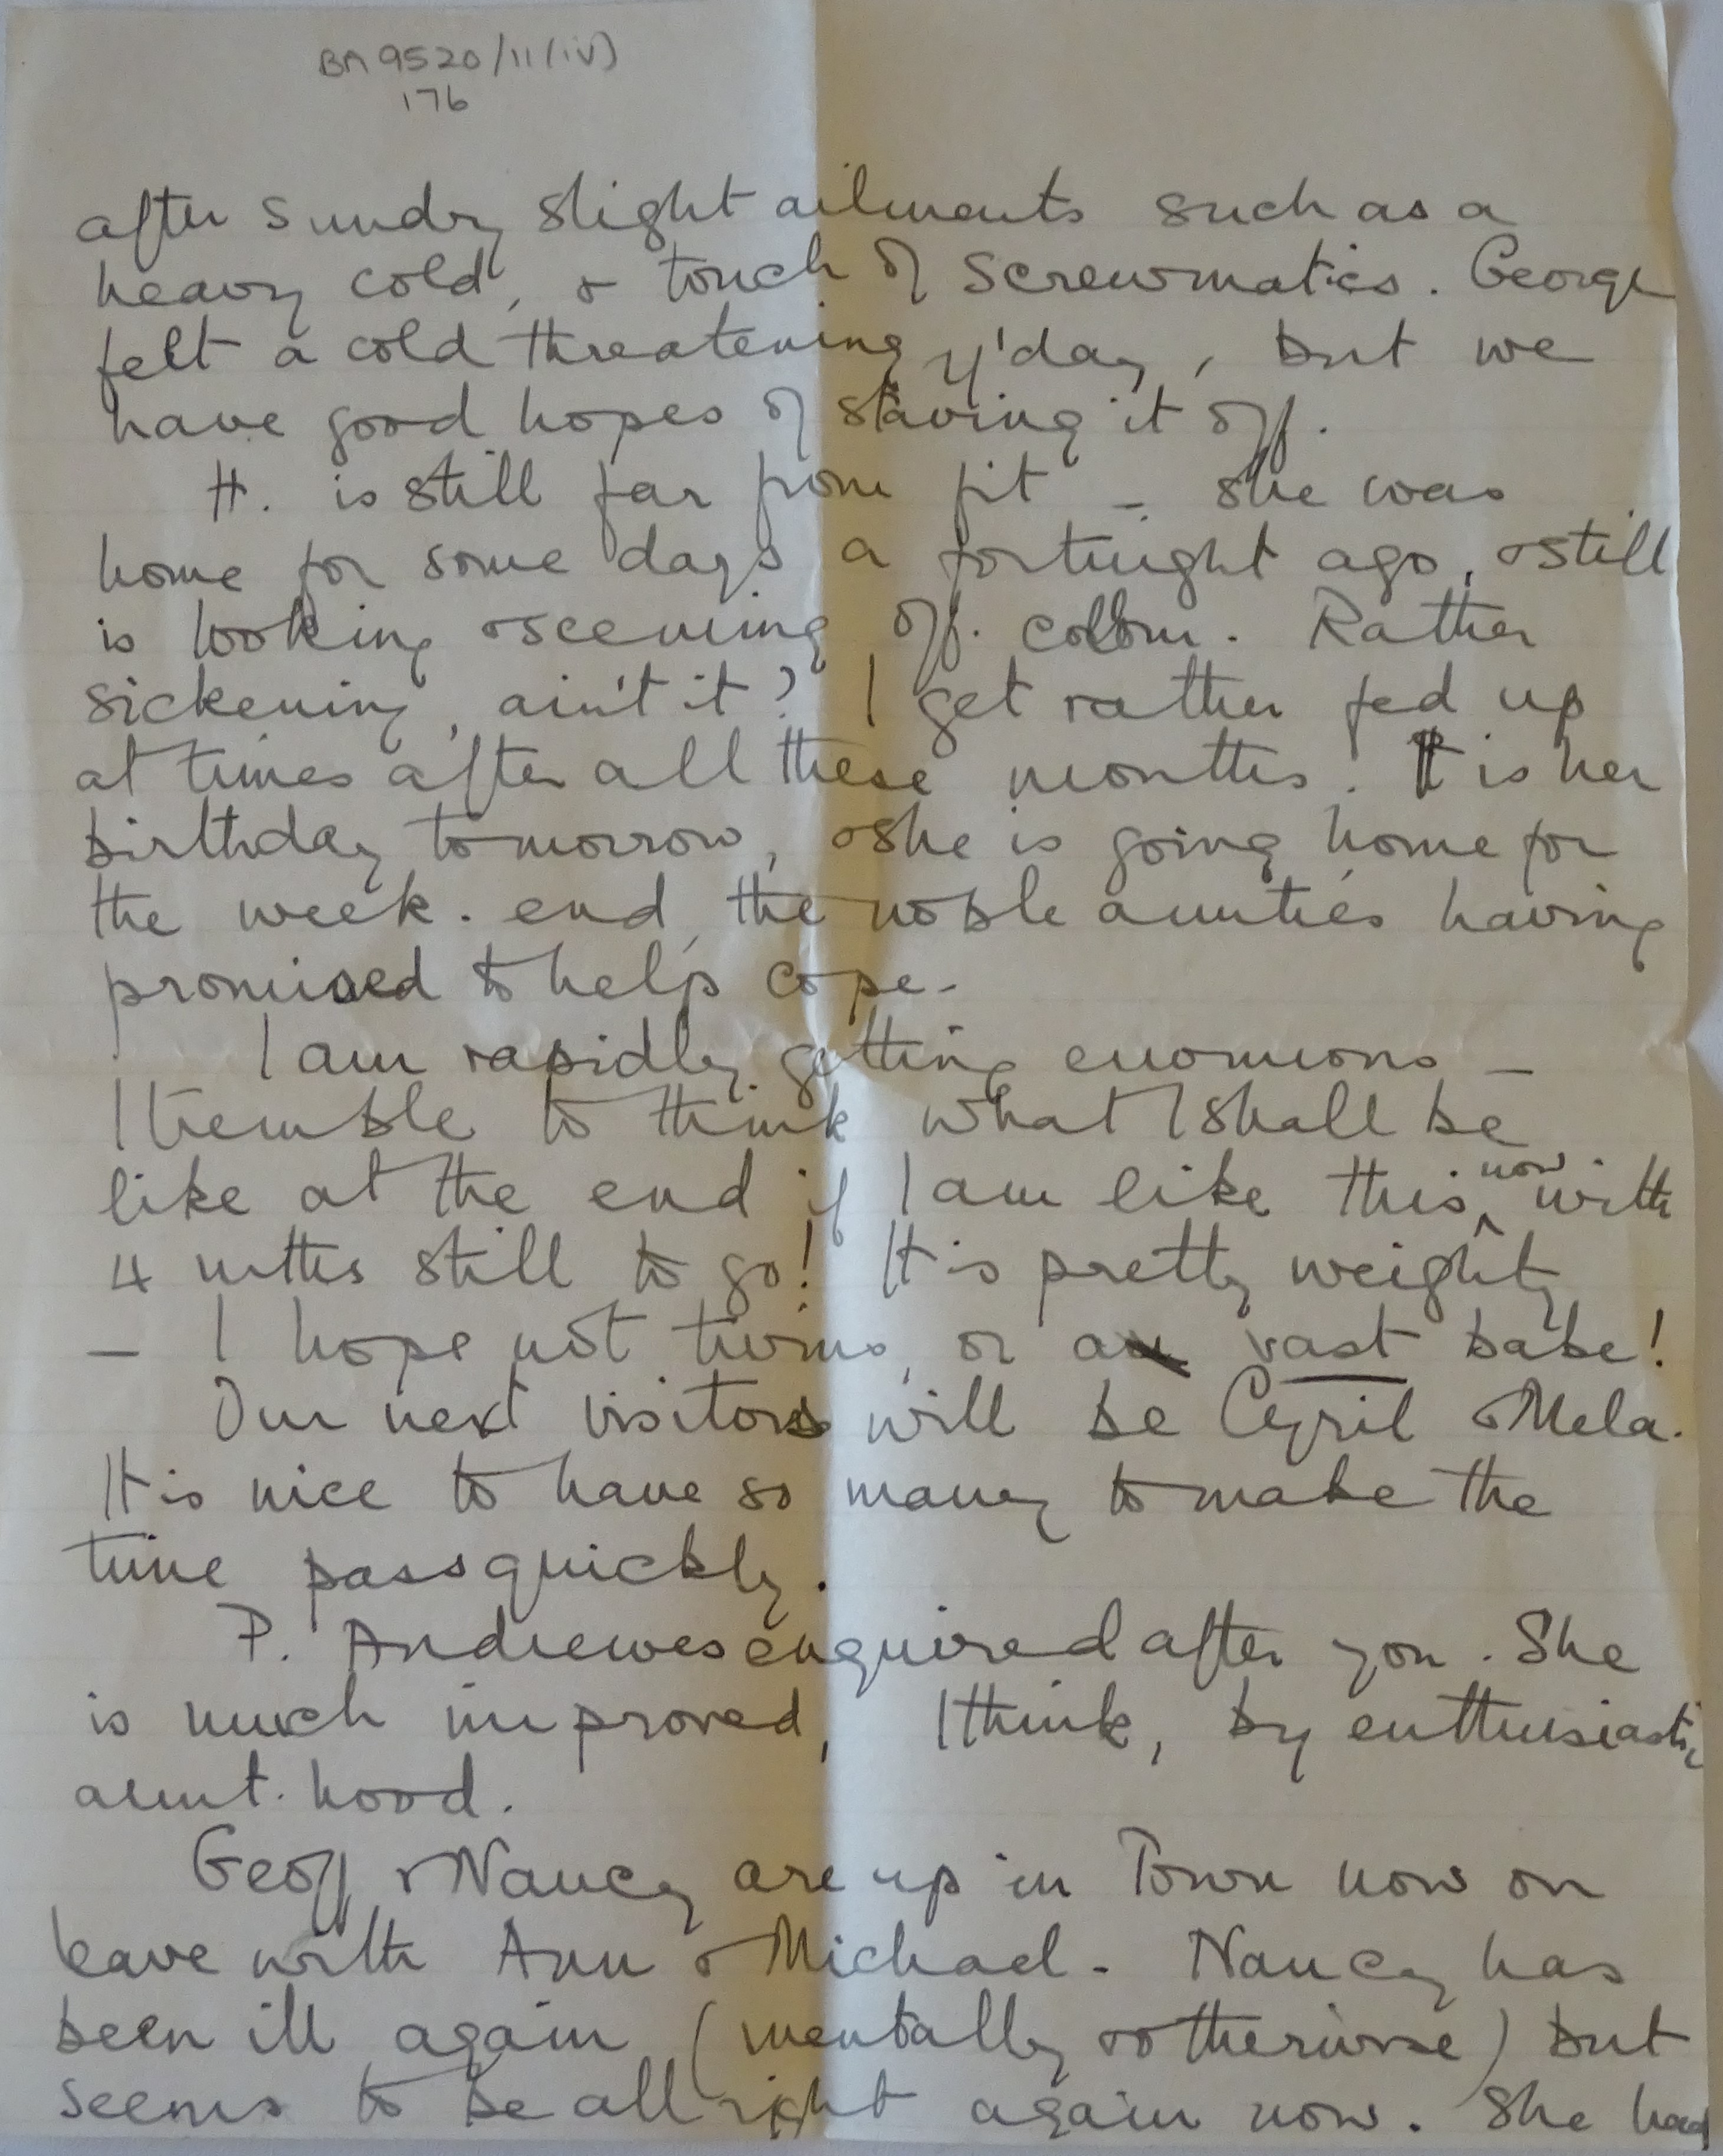 BA 9520/11(iv)
176
after sundry slight ailments such as a
heavy cold, & touch of screwmatics. George
felt a cold threatening y'day, but we
have good hopes of staving it off.
H. is still far from fit - she was
home for some days a fortnight ago, & still
is looking & seeming off. colour. Rather
sickening, ain't it? I get rather fed up
at times after all these months. It is her
birthday tomorrow, & she is going home for
the week-end, the noble aunties having
promised to help cope.
I am rapidly getting enormous —
I tremble to think what I shall be
like at the end if I am like this now with
4 mths still to go! It is pretty weighty
— I hope not twins, or a vast babe!
Our next visitors will be Cyril & Mela.
It is nice to have so many to make the
time pass quickly.
P. Andrewes enquired after you. She
is much improved, I think, by enthusiastic
aunt-hood.
Geoff & Nancy are up in Town now on
leave with Ann & Michael. Nancy has
been ill again (mentally & otherwise) but
seems to be all right again now. She had